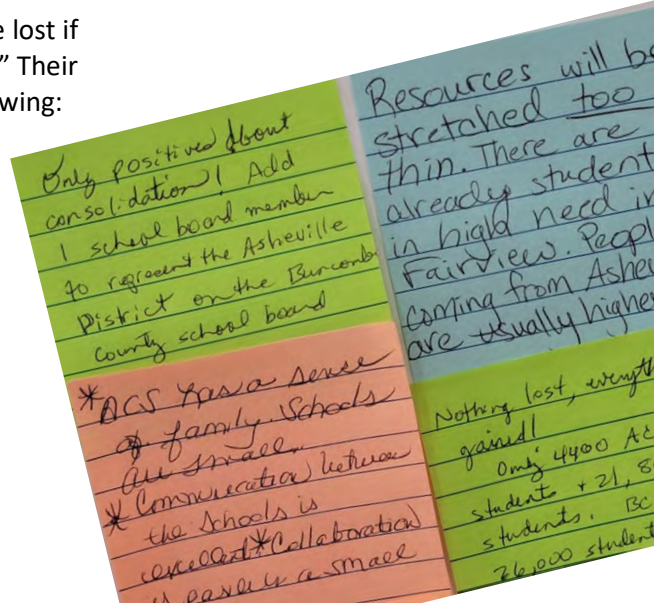 e lost if
” Their
wing:
Only positives about
consolidation! Add
1 school board member
to represent the Asheville
District on the Buncombe
County school board
Resources will be
stretched too
thin. There are
already student
in high need in
Fairview. Peopl
coming from Ashev
are usually higher
*ACS has a sense
of family. Schools
are small.
* Communication between
the schools is
excellent *Collaboration
is easy in a small
Nothing lost, everyth
gained!
Only 4400 AC
students + 21, 8
students. BC
26,000 student